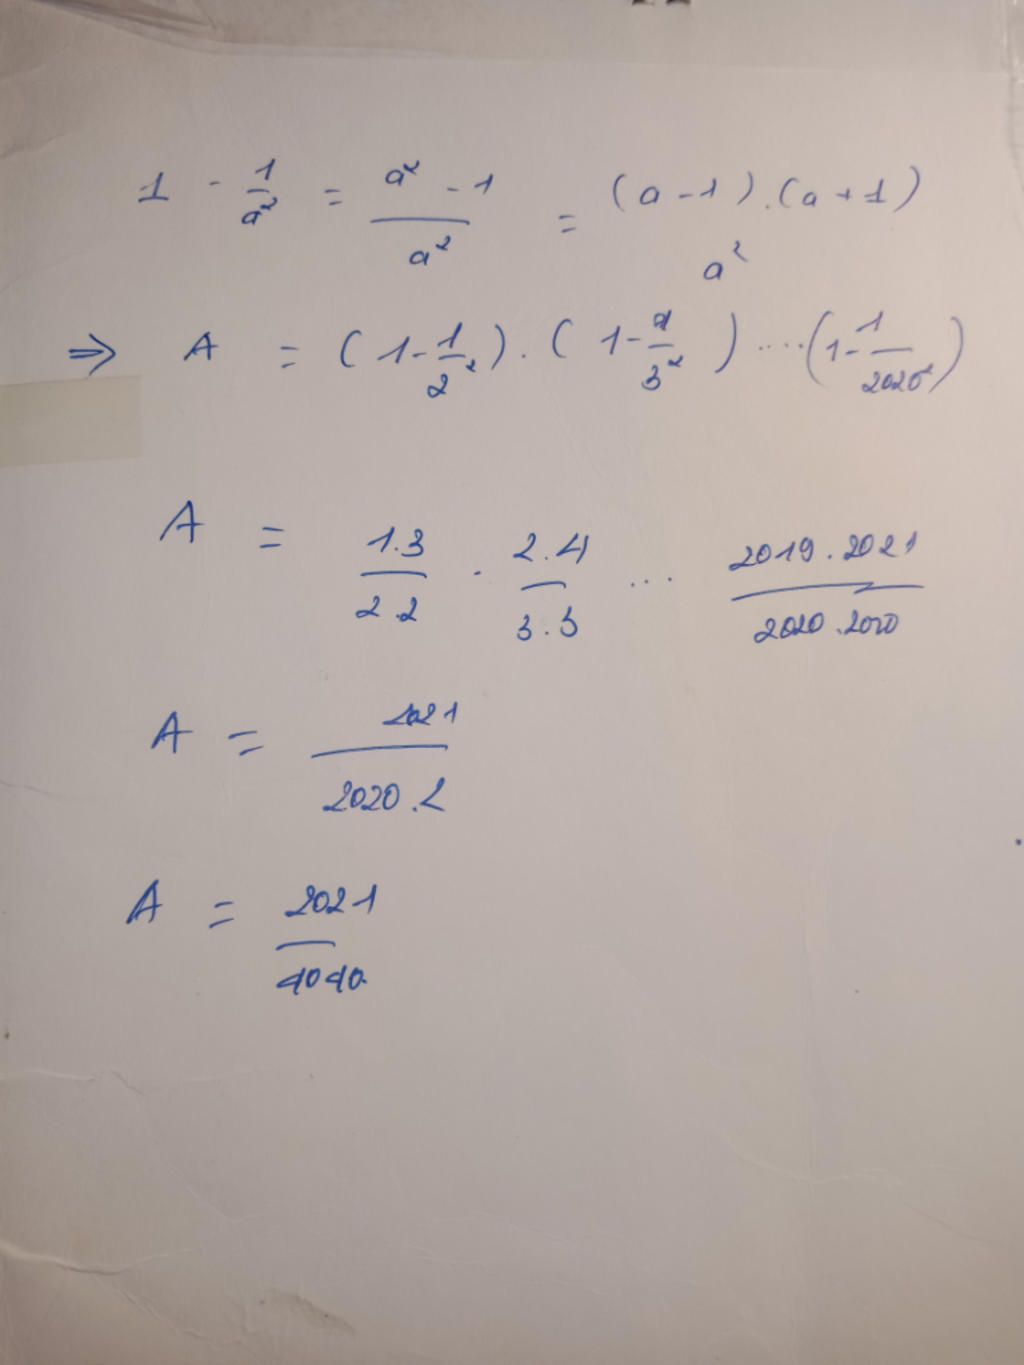 1 - 1/a² = (a² - 1)/a² = (a - 1).(a + 1) a²
⇒ A = (1 - 1/2²).(1 - 1/3²) ....(1 - 1/2020²)
A = 1.3/2.2 . 2.4/3.3 ... 2019.2021/2020.2020
A = 2021/2020.2
A = 2021/4040.